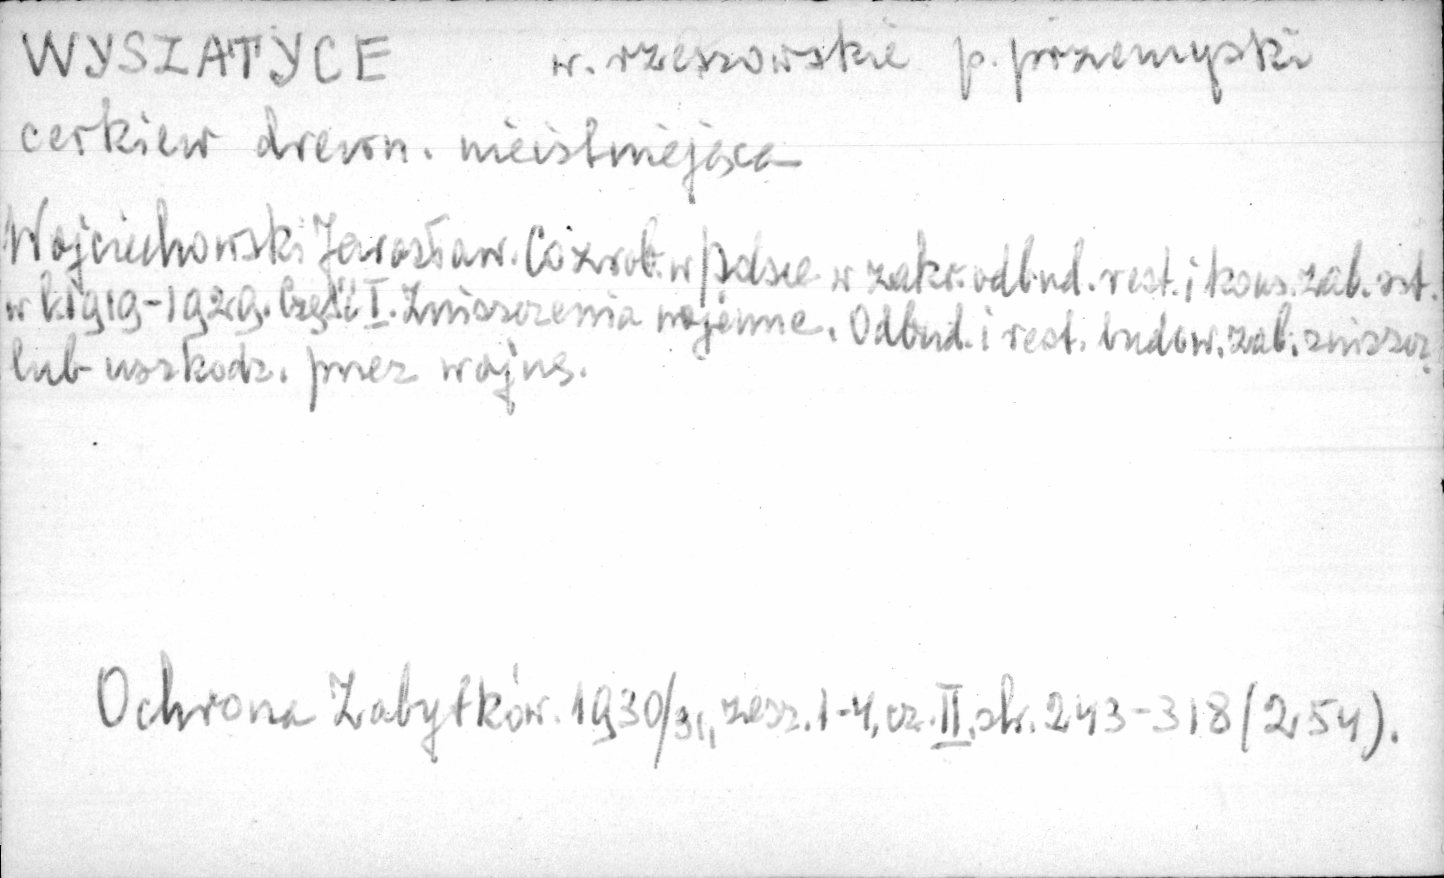 WYSZATYCE w. rzeszowskie p. przemyski
cerkiew drewn. nieistniejąca
Wojciechowski Jarosław. Co zrob. w Polsce w zakr. odbud. rest. i kons. zab. szt.
w l. 1919-1929. Część I. Zniszczenia wojenne. Odbud. i rest. budow. zab. zniszcz.
lub uszkodz. przez wojnę.
Ochrona Zabytków. 1930/31, zesz. 1-4, cz. II, str. 243-318 (254).